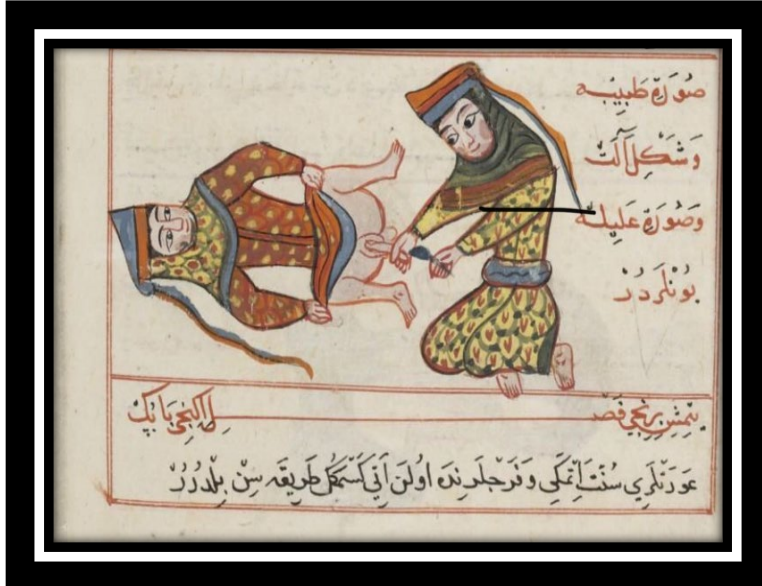 صورة طبيبه
وشكل آلت
وصورة عليله
بونلردر
يتمش برنجي فصل اكنجي بابك
عورتلري سنت اتمكي وفرجلرنده اولن اتي كسمكل طريقه سن بلدرر